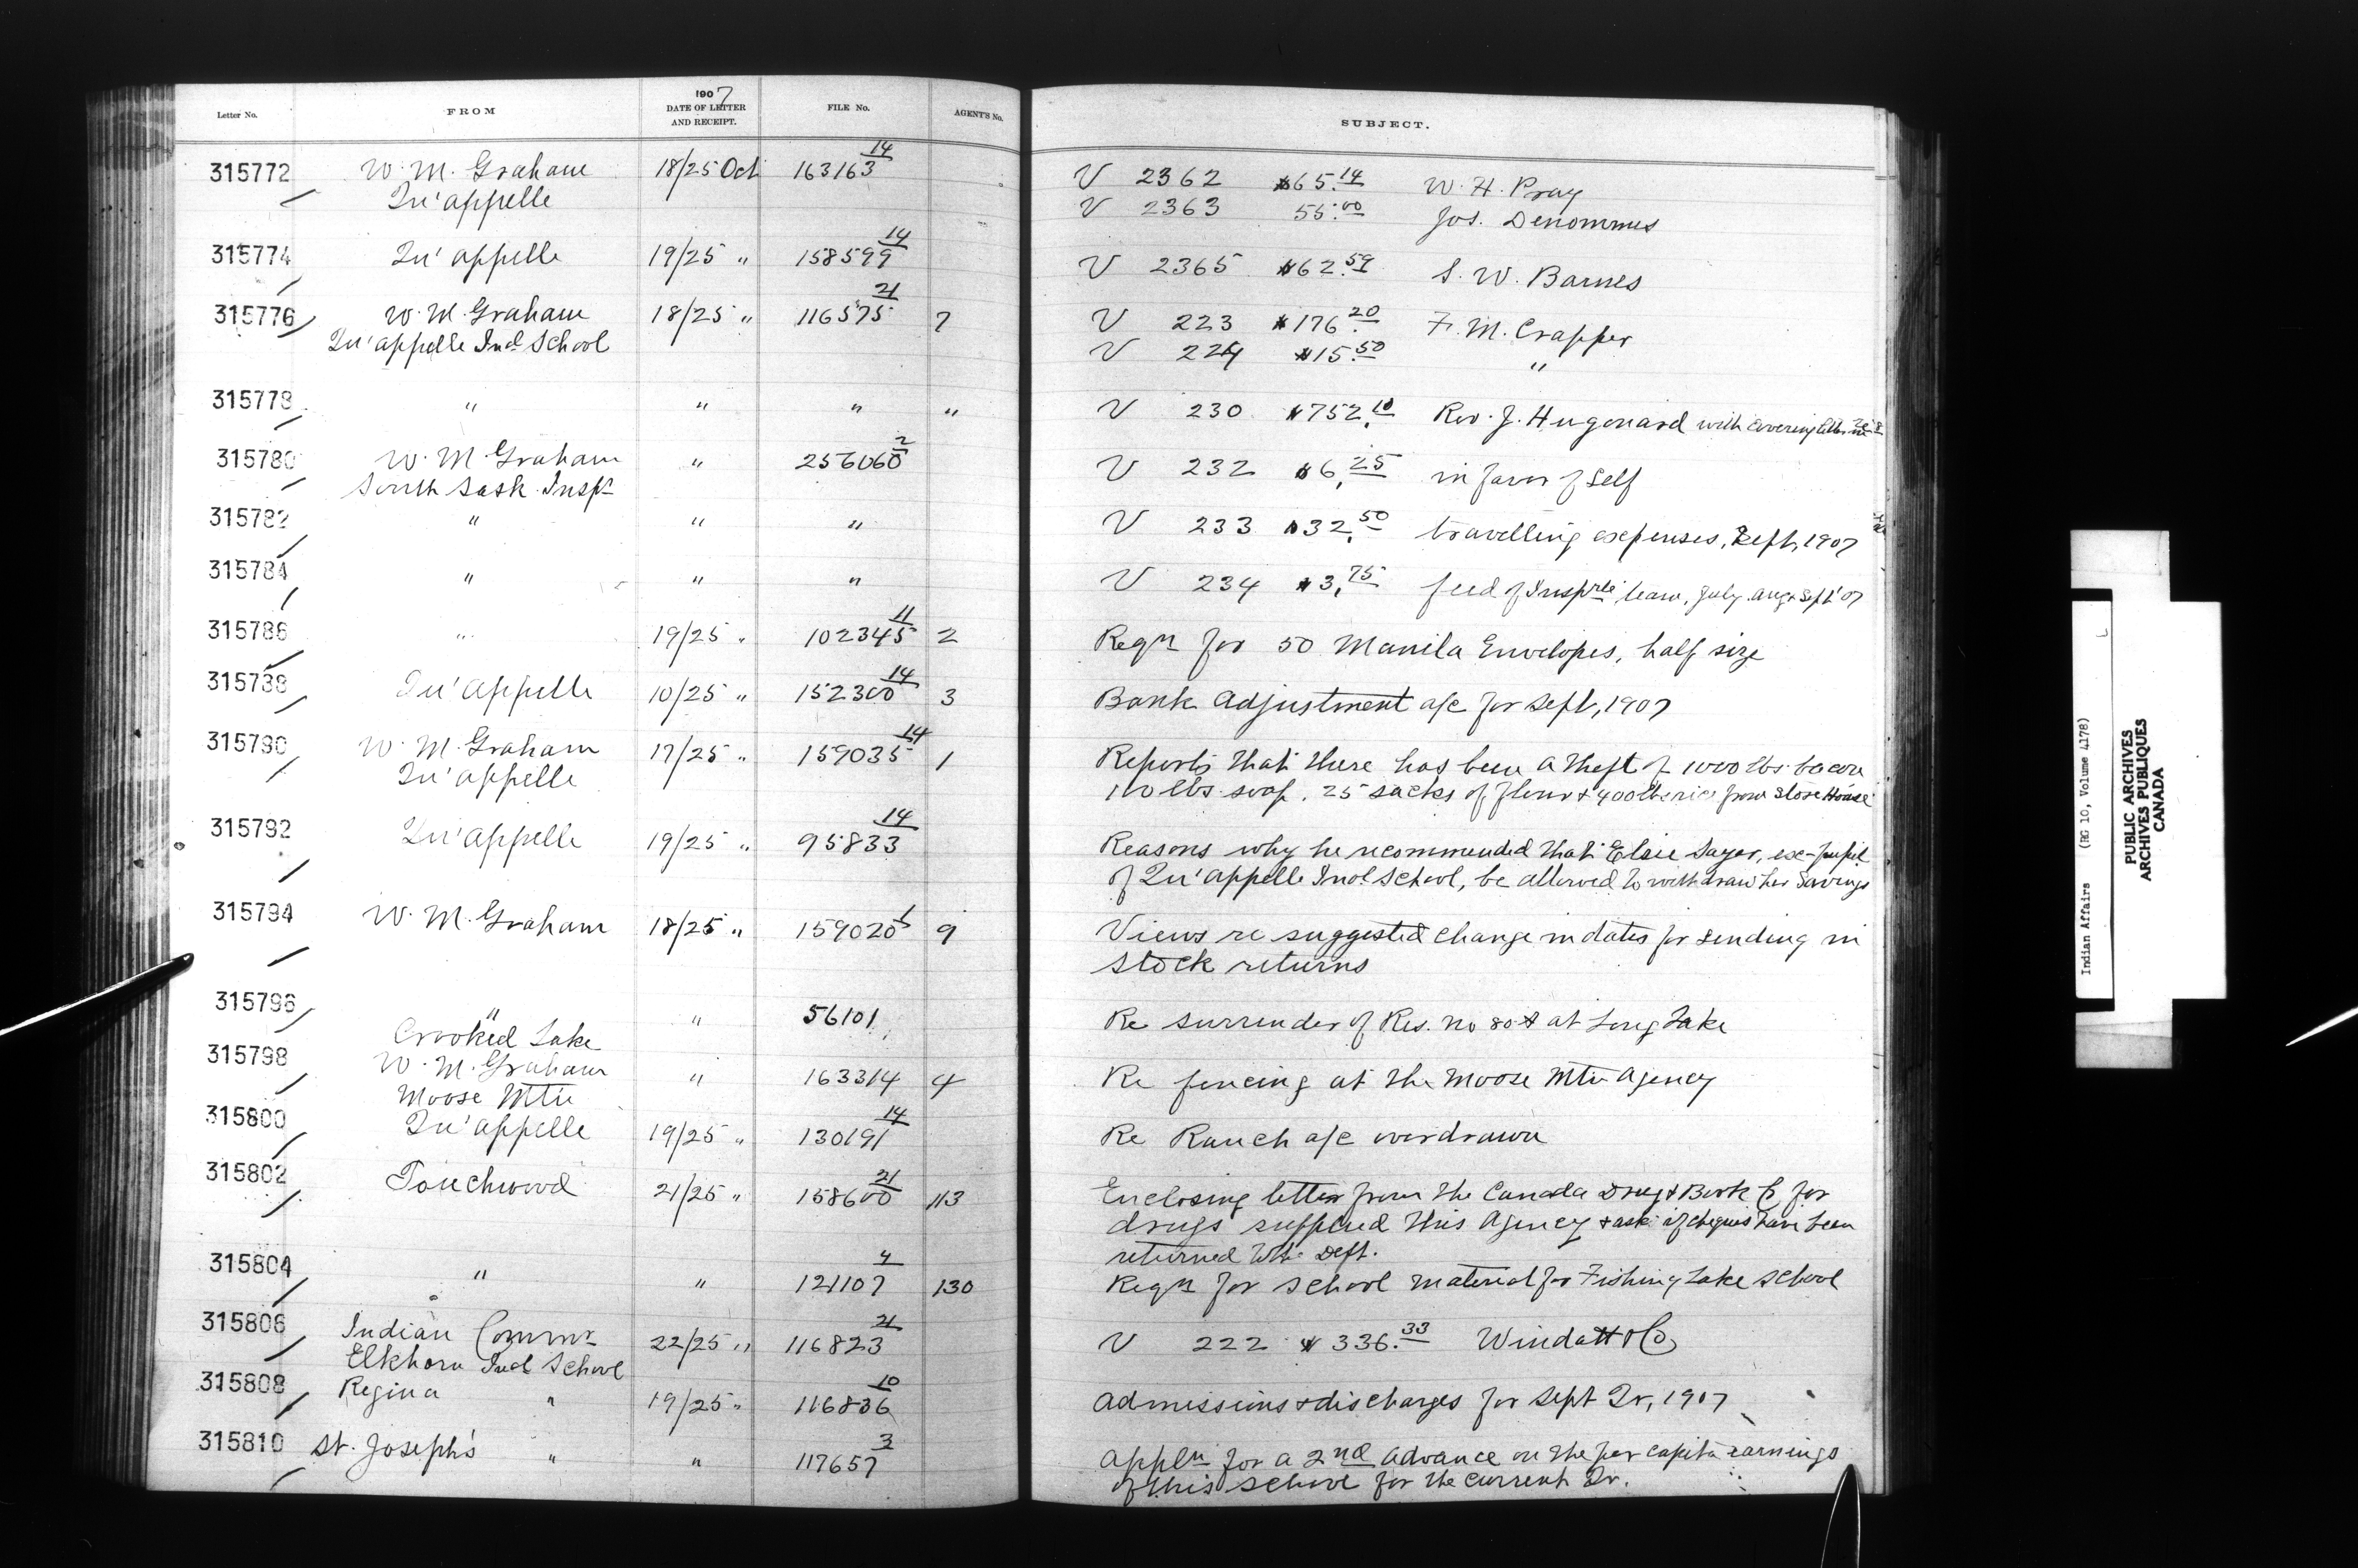 1907
Letter No. FROM DATE OF LETTER AND RECEIPT. FILE No. AGENT'S No. SUBJECT.
315772 W. M. Graham 18/25 Oct 163163 14 V 2362 $65.14 W. H. Pray
Qu'appelle V 2363 55.00 Jos. Denommus
315774 Qu'appelle 19/25 " 158599 14 V 2365 $62.59 S. W. Barnes
315776 W. M. Graham 18/25 " 116575 21 7 V 223 $176.20 F. M. Crapper
Qu'appelle Ind School V 224 $15.50 "
315778 " " " " V 230 $752.10 Rev. J. Hugonard with covering
315780 W. M. Graham " 256060 2 V 232 $6.25 in favor of Self
South Sask. Inspt
315782 " " " V 233 $32.50 travelling expenses, Sept, 1907
315784 " " " V 234 $3.75 feed of team, July Aug & Sept '07
315786 " 19/25 " 102345 11 2 Reqn for 50 Manila Envelopes, half size
315788 Qu'Appelle 10/25 " 152300 14 3 Bank Adjustment a/c for Sept, 1907
315790 W. M. Graham 17/25 " 159035 14 1 Reports that there has been a theft of 1000 lbs bacon
Qu'appelle 110 lbs soap, 25 sacks of flour & 400 lbs rice from Store House
315792 Qu'Appelle 19/25 " 95833 14 Reasons why he recommended that Elsie Sayer, ex-pupil
of Qu'appelle Ind School, be allowed to withdraw her Savings
315794 W. M. Graham 18/25 " 159020 1 9 Views re suggested change in dates for sending in
stock returns
315796 " " 56101 Re surrender of Res. no 80 A at Long Lake
Crooked Lake
315798 W. M. Graham " 163314 4 Re fencing at the Moose Mtn Agency
Moose Mtn
315800 Qu'Appelle 19/25 " 130191 14 Re Ranch a/c overdrawn
315802 Touchwood 21/25 " 158600 21 113 Enclosing letter from the Canada Drug & Book Co for
drugs supplied this Agency & ask if cheques have been
returned to the Dept.
315804 " " 121107 4 130 Reqn for School material for Fishing Lake School
315806 Indian Commr 22/25 " 116823 21 V 222 $336.33 Windatt & Co
Elkhorn Ind School
315808 Regina " 19/25 " 116836 10 Admissions & discharges for Sept Qr, 1907
315810 St. Joseph's " " 117657 3 Appln for a 2nd advance on the per capita earnings
of this school for the current Qr.
Indian Affairs (RG 10, Volume 4178)
PUBLIC ARCHIVES
ARCHIVES PUBLIQUES
CANADA